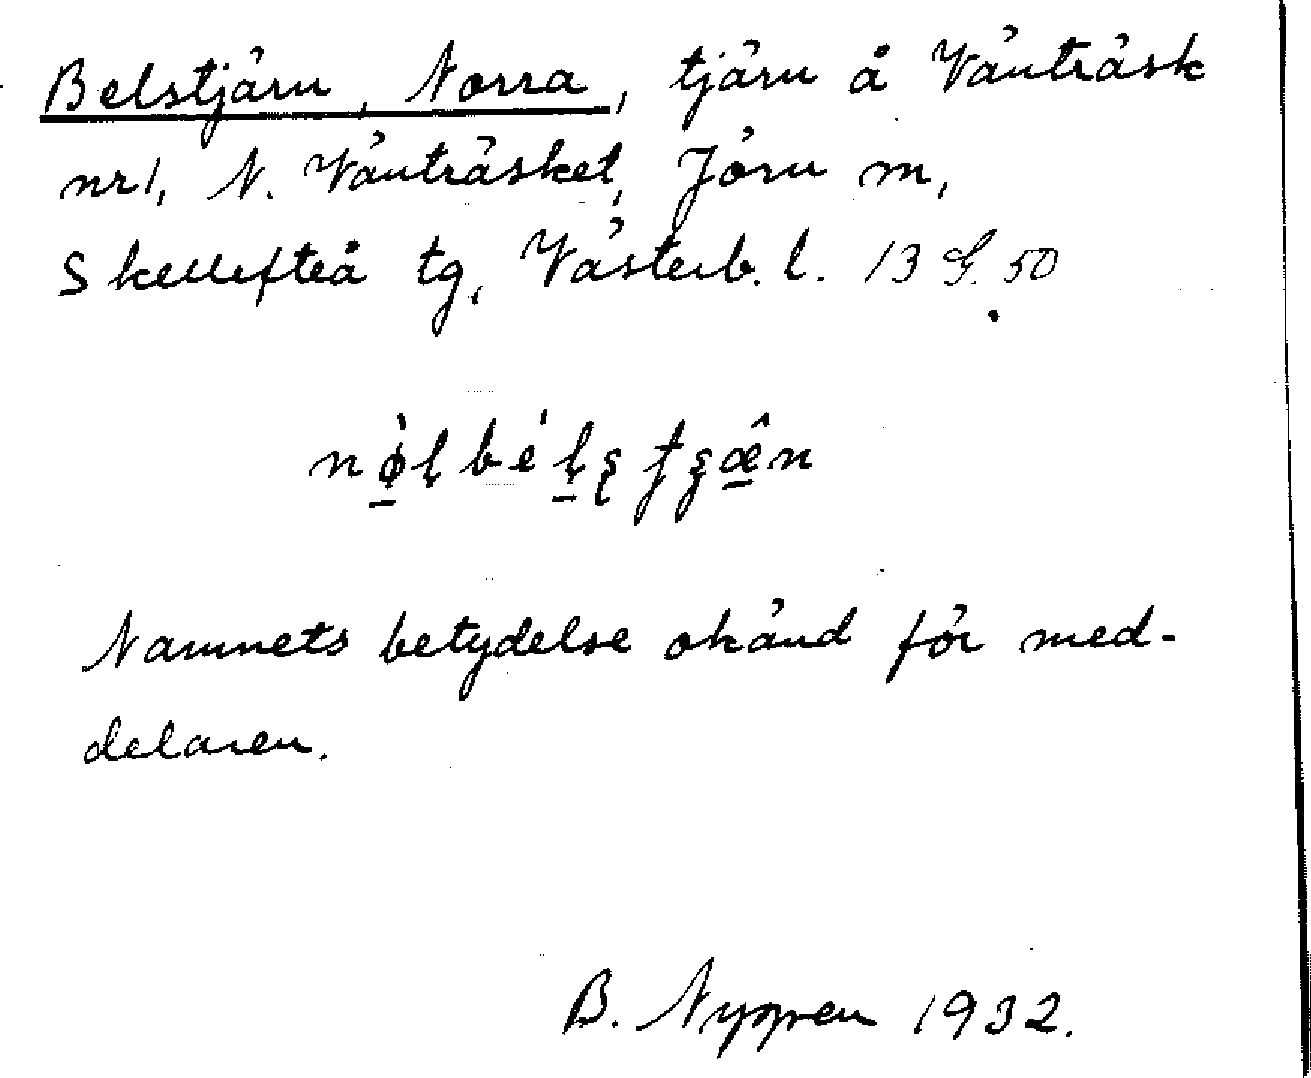 Belstjärn, Norra, tjärn å Vänträsk
nr 1, N. Vänträsket, Jörn m,
Skellefteå tg, Västerb. l. 13 G. 50
Namnets betydelse okänd för med-
delaren.
B. Nygren 1932.